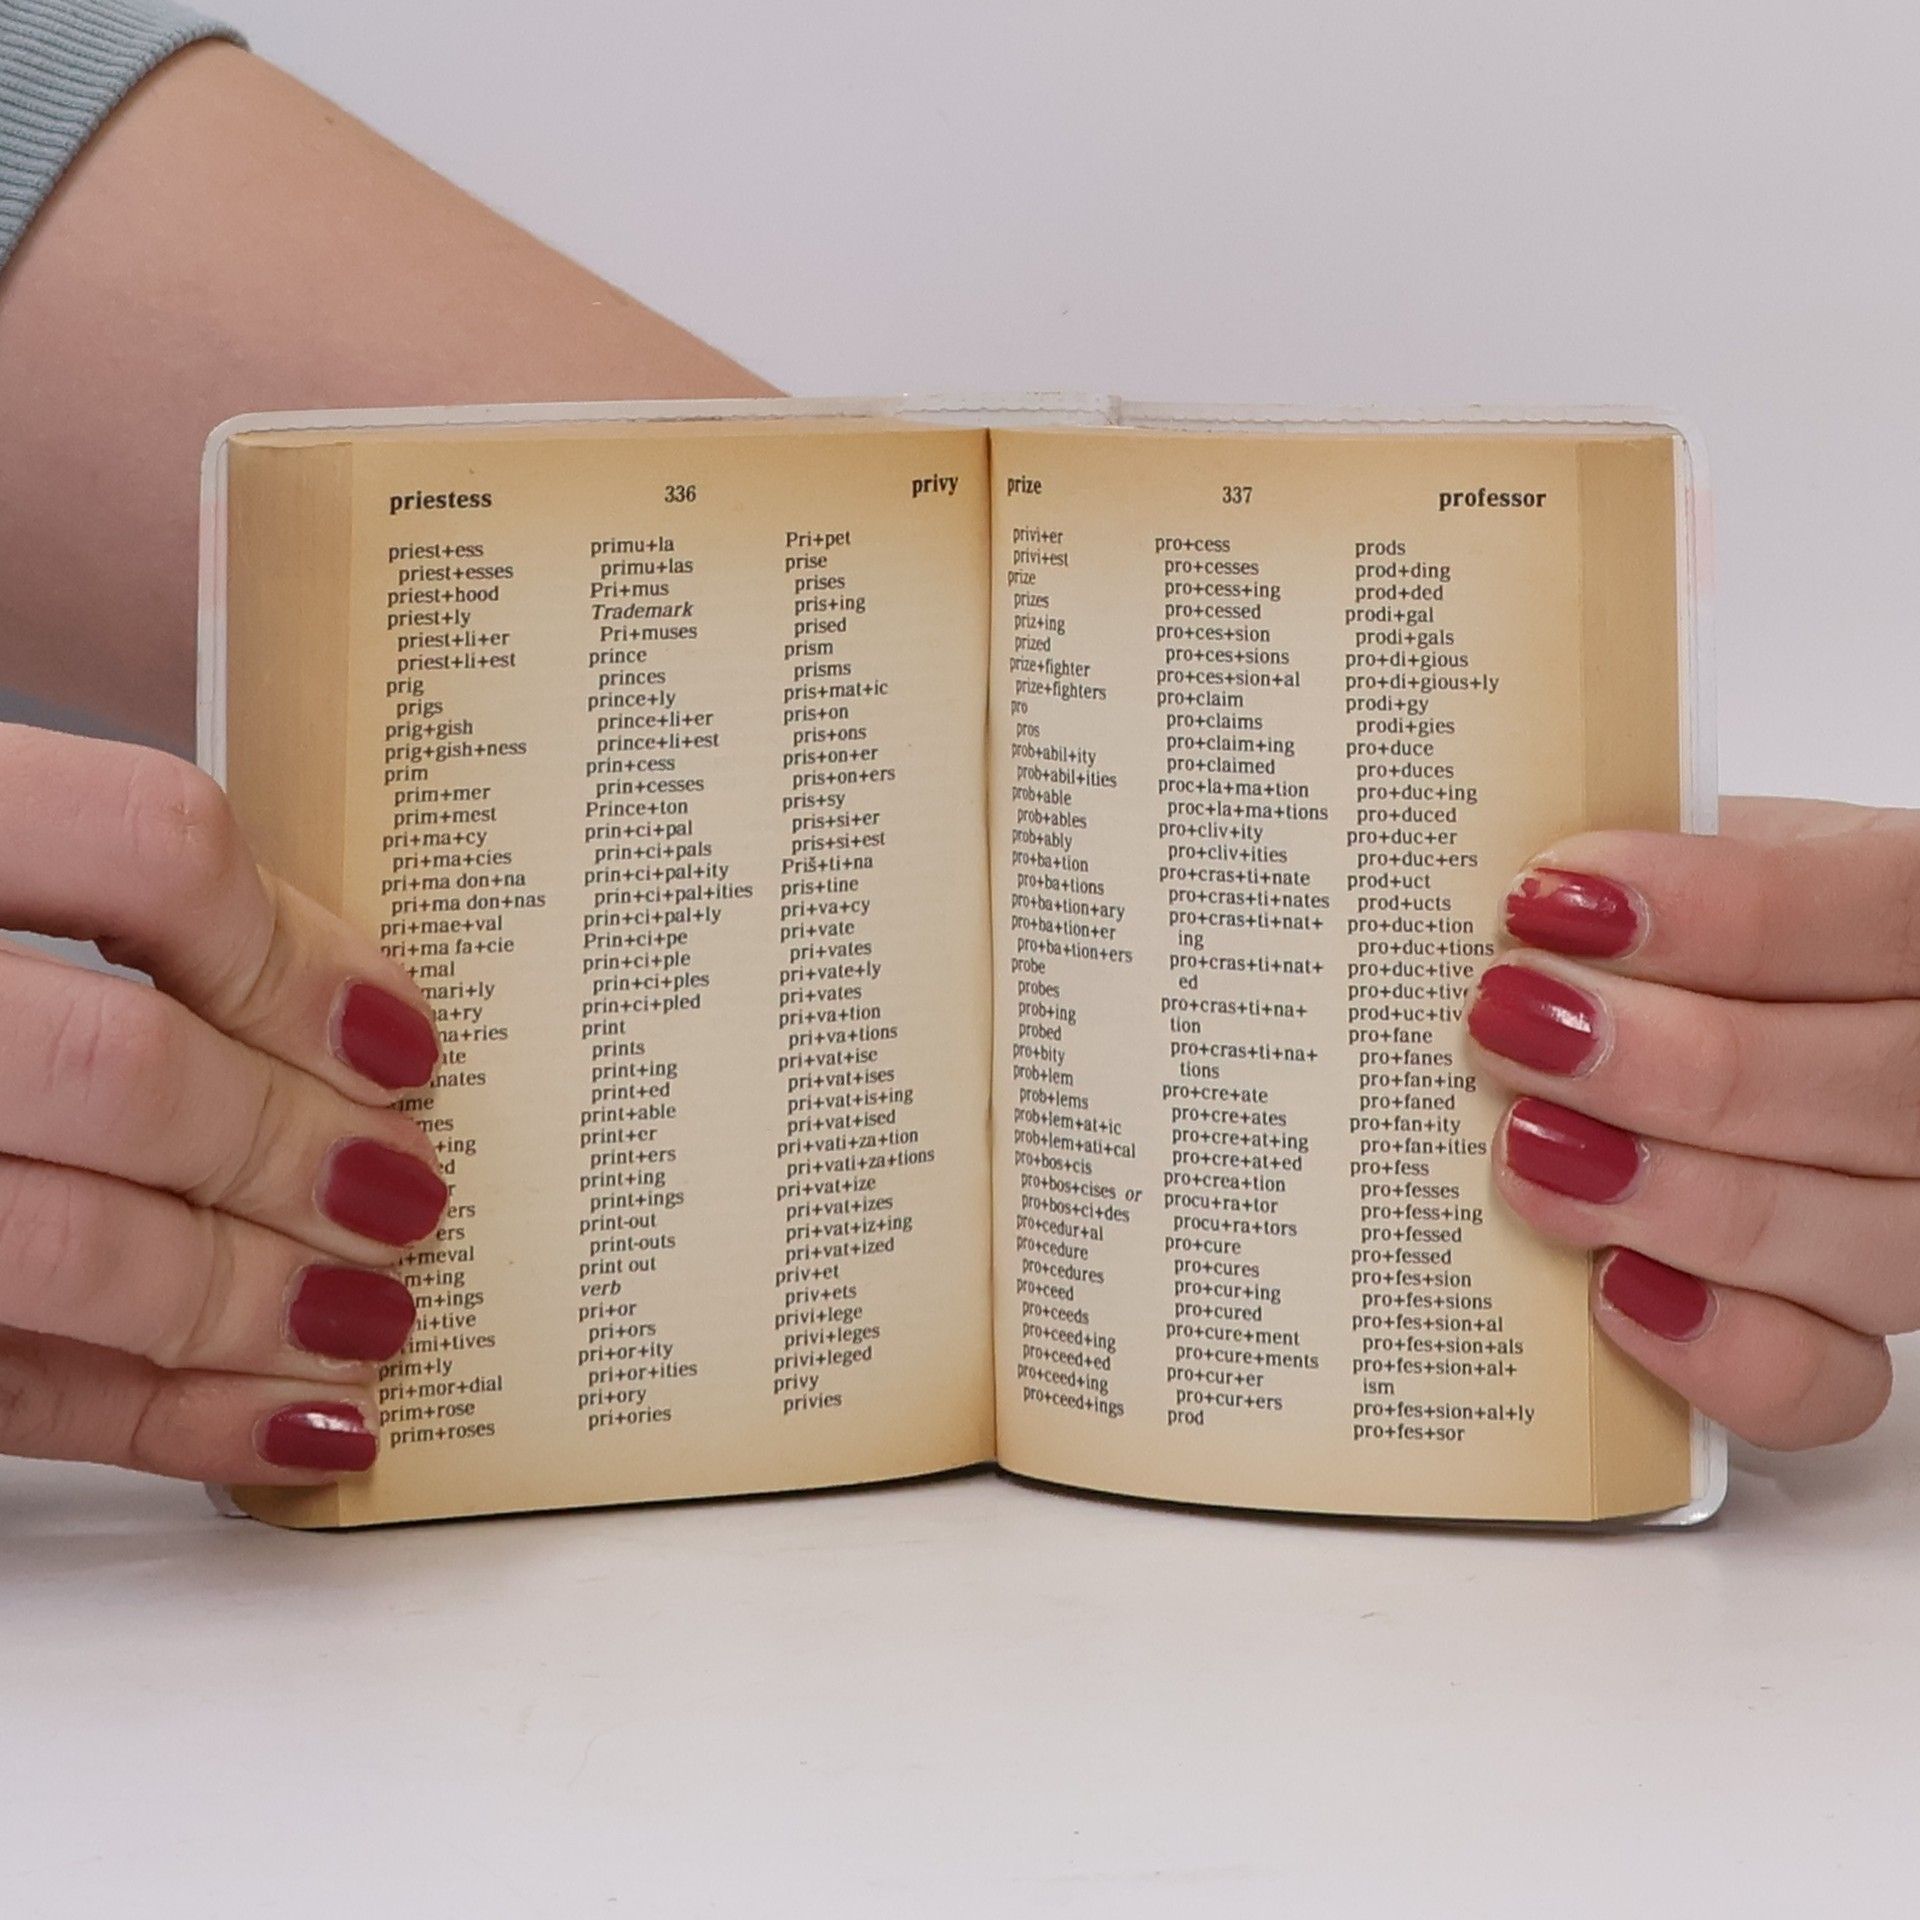 priestess 336 privy
priest+ess
priest+esses
priest+hood
priest+ly
priest+li+er
priest+li+est
prig
prigs
prig+gish
prig+gish+ness
prim
prim+mer
prim+mest
pri+ma+cy
pri+ma+cies
pri+ma don+na
pri+ma don+nas
pri+mae+val
pri+ma fa+cie
+mal
mari+ly
a+ry
na+ries
ate
nates
ime
mes
+ing
ed
r
ers
ers
+meval
m+ing
m+ings
ni+tive
imi+tives
prim+ly
pri+mor+dial
prim+rose
prim+roses
primu+la
primu+las
Pri+mus
Trademark
Pri+muses
prince
princes
prince+ly
prince+li+er
prince+li+est
prin+cess
prin+cesses
Prince+ton
prin+ci+pal
prin+ci+pals
prin+ci+pal+ity
prin+ci+pal+ities
prin+ci+pal+ly
Prin+ci+pe
prin+ci+ple
prin+ci+ples
prin+ci+pled
print
prints
print+ing
print+ed
print+able
print+er
print+ers
print+ing
print+ings
print-out
print-outs
print out
verb
pri+or
pri+ors
pri+or+ity
pri+or+ities
pri+ory
pri+ories
Pri+pet
prise
prises
pris+ing
prised
prism
prisms
pris+mat+ic
pris+on
pris+ons
pris+on+er
pris+on+ers
pris+sy
pris+si+er
pris+si+est
Priš+ti+na
pris+tine
pri+va+cy
pri+vate
pri+vates
pri+vate+ly
pri+vates
pri+va+tion
pri+va+tions
pri+vat+ise
pri+vat+ises
pri+vat+is+ing
pri+vat+ised
pri+vati+za+tion
pri+vati+za+tions
pri+vat+ize
pri+vat+izes
pri+vat+iz+ing
pri+vat+ized
priv+et
priv+ets
privi+lege
privi+leges
privi+leged
privy
privies
prize 337 professor
privi+er
privi+est
prize
prizes
priz+ing
prized
prize+fighter
prize+fighters
pro
pros
prob+abil+ity
prob+abil+ities
prob+able
prob+ables
prob+ably
pro+ba+tion
pro+ba+tions
pro+ba+tion+ary
pro+ba+tion+er
pro+ba+tion+ers
probe
probes
prob+ing
probed
pro+bity
prob+lem
prob+lems
prob+lem+at+ic
prob+lem+ati+cal
pro+bos+cis
pro+bos+cises or
pro+bos+ci+des
pro+cedur+al
pro+cedure
pro+cedures
pro+ceed
pro+ceeds
pro+ceed+ing
pro+ceed+ed
pro+ceed+ing
pro+ceed+ings
pro+cess
pro+cesses
pro+cess+ing
pro+cessed
pro+ces+sion
pro+ces+sions
pro+ces+sion+al
pro+claim
pro+claims
pro+claim+ing
pro+claimed
proc+la+ma+tion
proc+la+ma+tions
pro+cliv+ity
pro+cliv+ities
pro+cras+ti+nate
pro+cras+ti+nates
pro+cras+ti+nat+
ing
pro+cras+ti+nat+
ed
pro+cras+ti+na+
tion
pro+cras+ti+na+
tions
pro+cre+ate
pro+cre+ates
pro+cre+at+ing
pro+cre+at+ed
pro+crea+tion
procu+ra+tor
procu+ra+tors
pro+cure
pro+cures
pro+cur+ing
pro+cured
pro+cure+ment
pro+cure+ments
pro+cur+er
pro+cur+ers
prod
prods
prod+ding
prod+ded
prodi+gal
prodi+gals
pro+di+gious
pro+di+gious+ly
prodi+gy
prodi+gies
pro+duce
pro+duces
pro+duc+ing
pro+duced
pro+duc+er
pro+duc+ers
prod+uct
prod+ucts
pro+duc+tion
pro+duc+tions
pro+duc+tive
pro+duc+tive
prod+uc+tiv
pro+fane
pro+fanes
pro+fan+ing
pro+faned
pro+fan+ity
pro+fan+ities
pro+fess
pro+fesses
pro+fess+ing
pro+fessed
pro+fessed
pro+fes+sion
pro+fes+sions
pro+fes+sion+al
pro+fes+sion+als
pro+fes+sion+al+
ism
pro+fes+sion+al+ly
pro+fes+sor